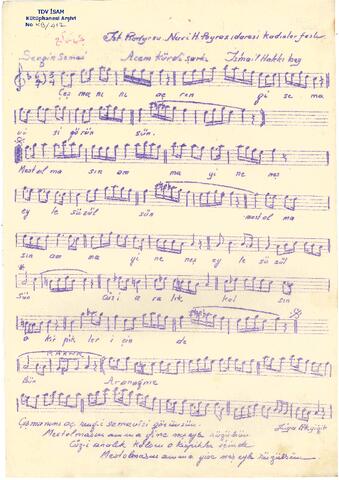 TDV İSAM
Kütüphanesi Arşivi
No
İst Radyosu Nuri H. Poyraz idaresi kadınlar faslı
Sengin Semai Acem kürdi şarkı İsmail Hakkı bey
Çeş ma nı nı aç ren gi se ma
vi si görün sün
Mest ol ma sın am ma yi ne neş
ey le süzül sün
mest ol ma
sin am ma yi ne neş ey le süzül
sün Cüzi a ra lık kal sın
o kir pik ler i çin de
sün Aranağme
Çeşmanını aç rengi semavisi görünsün
Mestolmasın amma yine neşeyle süzülsün
Cüzi aralık kalsın o kirpikler içinde
Mestolmasın amma yine neşeyle süzülsün